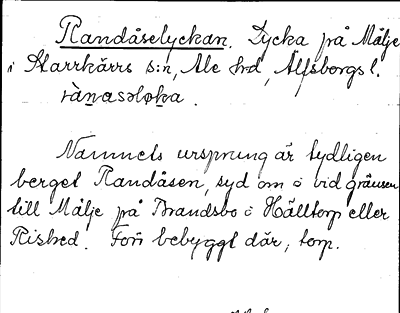 Randåselyckan. Lycka på Målje
i Starrkärrs s:n, Ale hd, Älfsborgs l.
ràṉasəlo̱ka.
Namnets ursprung är tydligen
berget Randåsen, syd om o vid gränsen
till Målje på Brandsbo o Hälltorp eller
Rished. Förr bebyggt där, torp.